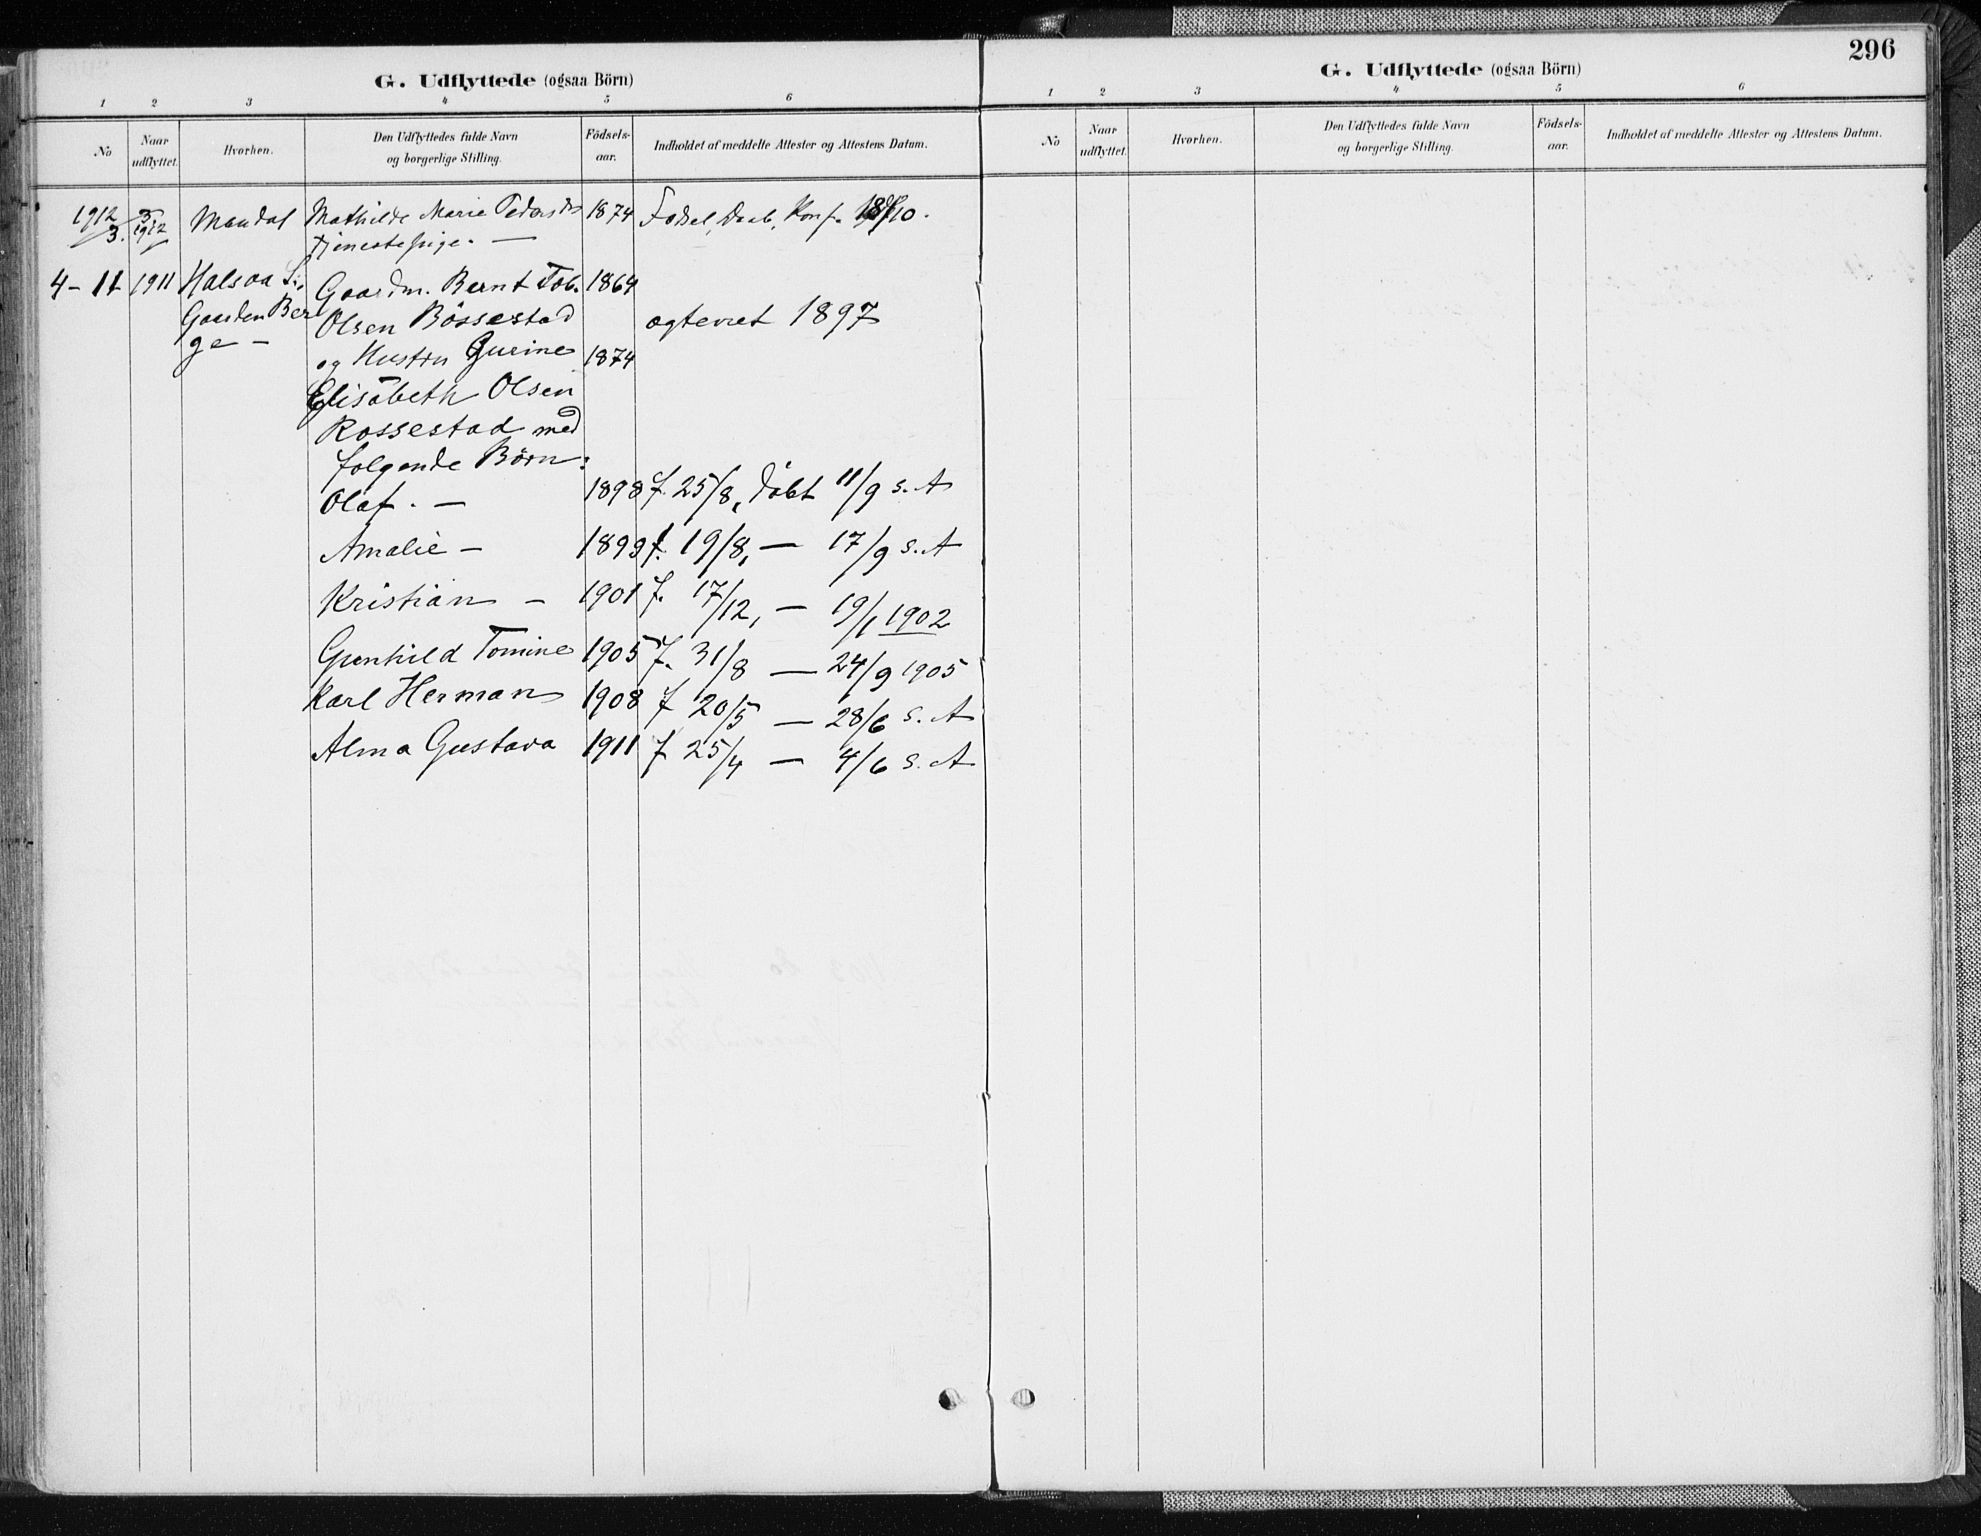 296
G. Udflyttede (ogsaa Börn)
1 2 3 4 5 6
No Naar udflyttet. Hvorhen. Den Udflyttedes fulde Navn og borgerlige Stilling. Födsels-aar. Indholdet af meddelte Attester og Attestens Datum.
1912 3. 1912 Mandal Mathilde Marie Pedersdr 1874 Fødsel, Daab, Konf. /10.
Tjenestepige. —
4 - 11 1911 Halsaa S., Gaardm. Bernt Tob. 1869
Gaarden Ber Olsen Røssestad ægteviet 1897
ge — og Hustru Gurine 1874
Elisabeth Olsen
Røssestad med
følgende Børn:
Olaf. — 1898 f. 25/8, døbt 11/9 s. A
Amalie — 1899 f. 19/8, — 17/9 s. A
Kristian — 1901 f. 17/12, — 19/1 1902
Gunhild Tomine 1905 f. 31/8 — 24/9 1905
Karl Herman 1908 f 20/5 — 28/6 s. A
Alma Gustava 1911 f 25/4 — 4/6 s. A
G. Udflyttede (ogsaa Börn)
1 2 3 4 5 6
No Naar udflyttet. Hvorhen. Den Udflyttedes fulde Navn og borgerlige Stilling. Födsels-aar. Indholdet af meddelte Attester og Attestens Datum.